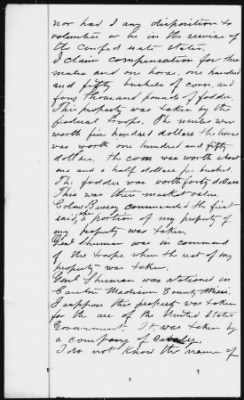 nor had I any disposition to
volunteer or be in the service of
the Confederate States.
I claim compensation for three
mules and one horse, one hundred
and fifty bushels of corn, and
four thousand pounds of fodder.
This property was taken by the
federal troops. The mules were
worth five hundred dollars the horse
was worth one hundred and fifty
dollars, the corn was worth about
one and a half dollars per bushel.
The fodder was worth forty dollars
This was their market value.
Colonel commanded the first
said, the portion of my property if
my property was taken.
Genl Sherman was in command
of the troops when the rest of my
property was taken.
Genl Sherman was stationed in
Canton Madison County Miss.
I suppose this property was taken
for the use of the United States
Government. It was taken by
a company of cavalry.
I do not know the name of